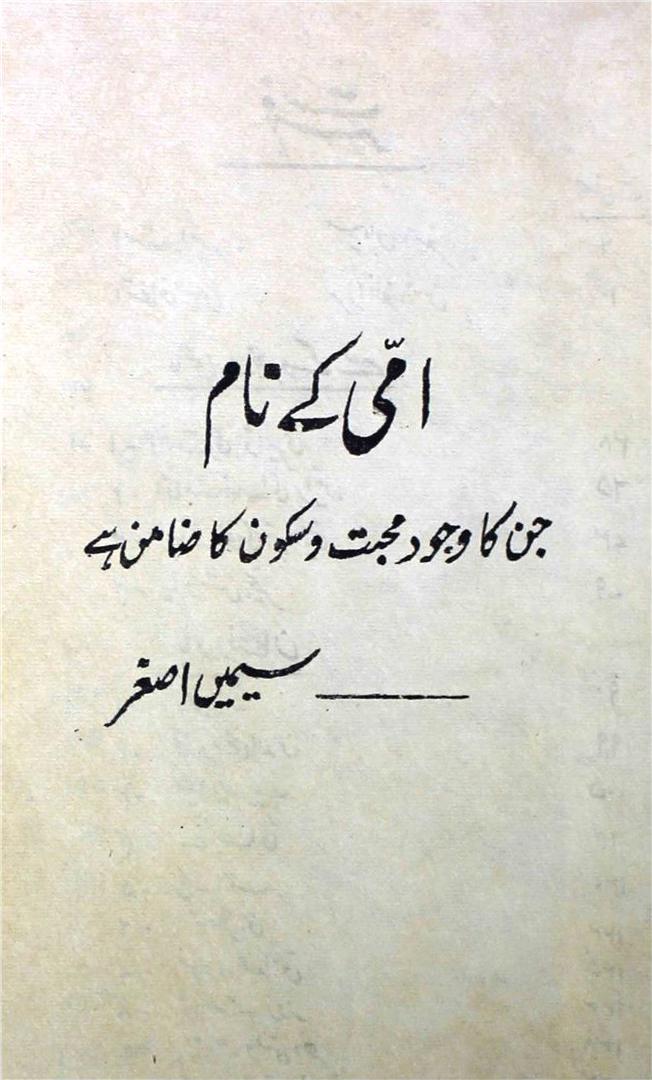 امّی کے نام
جن کا وجود محبت و سکون کا ضامن ہے
سیمیں اصغر